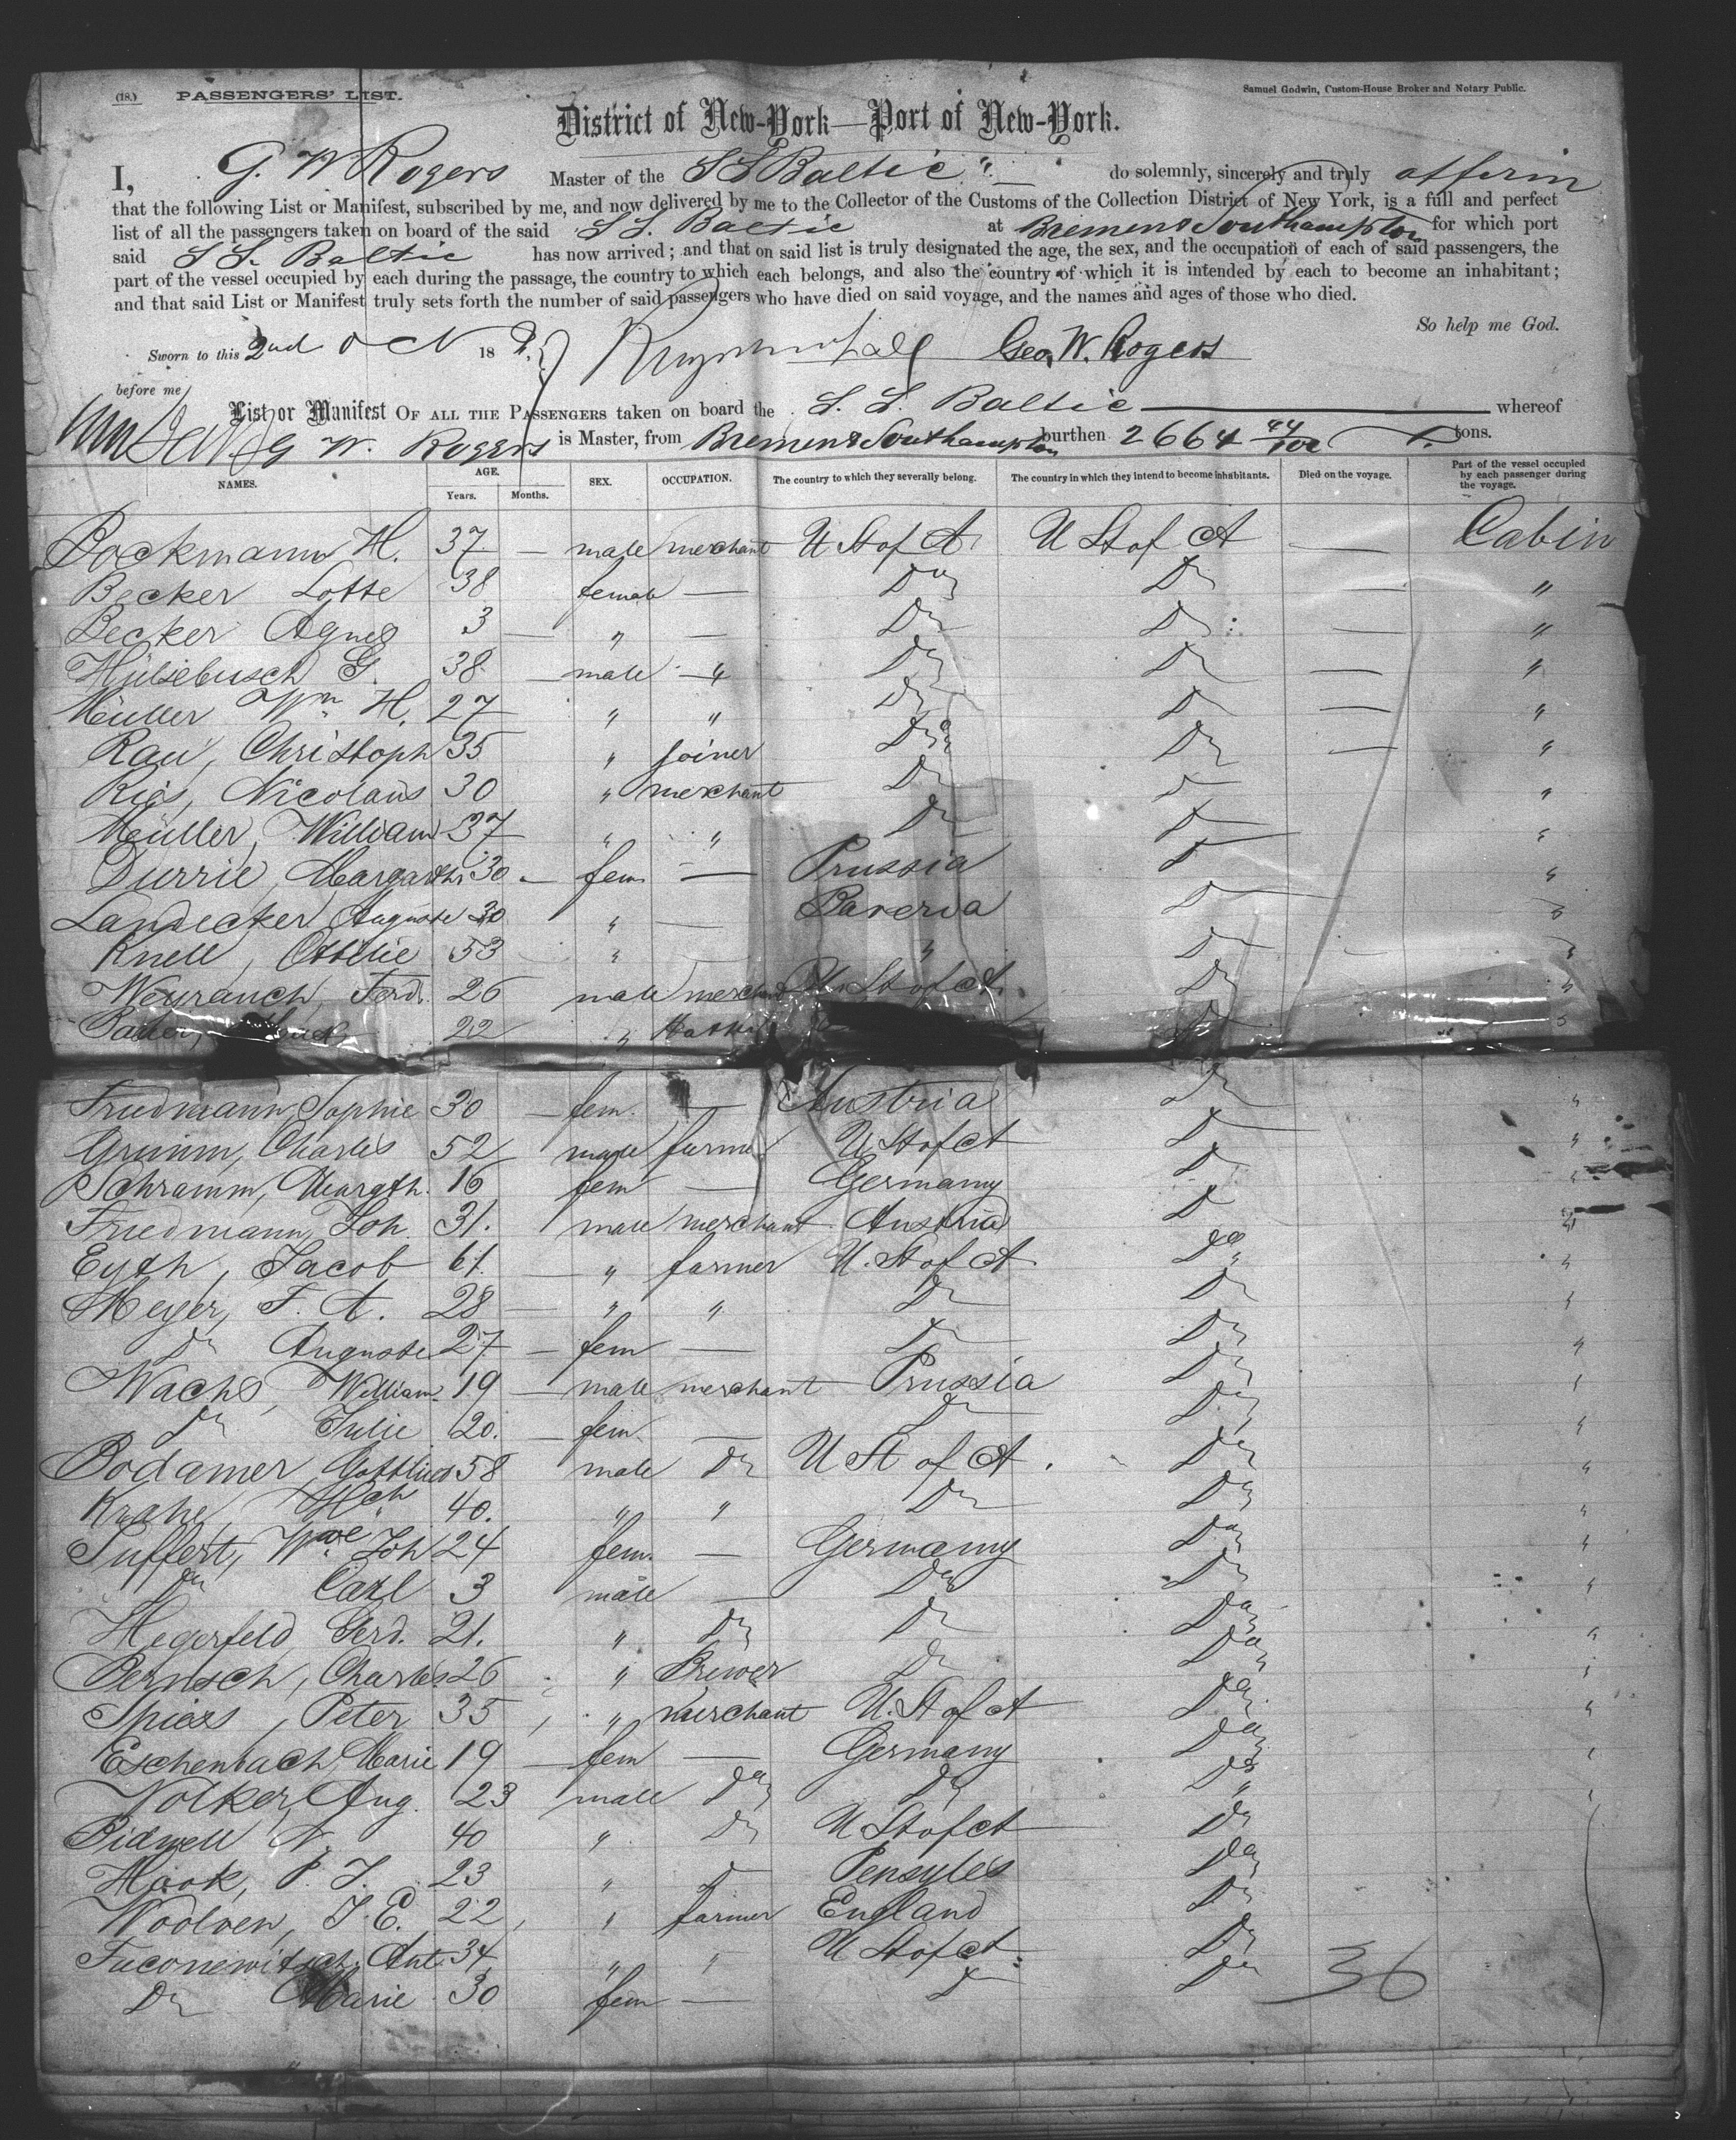 (18.) PASSENGERS' LIST. Samuel Godwin, Custom-House Broker and Notary Public.
District of New-York—Port of New-York.
I, G. W Rogers Master of the SS Baltic do solemnly, sincerely and truly affirm
that the following List or Manifest, subscribed by me, and now delivered by me to the Collector of the Customs of the Collection District of New York, is a full and perfect
list of all the passengers taken on board of the said S S. Baltic at Bremen & Southampton for which port
said S S. Baltic has now arrived; and that on said list is truly designated the age, the sex, and the occupation of each of said passengers, the
part of the vessel occupied by each during the passage, the country to which each belongs, and also the country of which it is intended by each to become an inhabitant;
and that said List or Manifest truly sets forth the number of said passengers who have died on said voyage, and the names and ages of those who died.
So help me God.
Sworn to this 2nd Oct 18 Geo. W. Rogers
before me
List or Manifest OF ALL THE PASSENGERS taken on board the S. S. Baltic whereof
G W. Rogers is Master, from Bremen & Southampton burthen 2664 44/100 tons.
NAMES. AGE. Years. Months. SEX. OCCUPATION. The country to which they severally belong. The country in which they intend to become inhabitants. Died on the voyage. Part of the vessel occupied by each passenger during the voyage.
Bockmann H. 37 — male merchant U St of A. U St of A — Cabin
Becker Lotte 38 female — Do Do — "
Becker Agnes 3 — " — Do Do — "
Hülsebusch G. 38 — male — " Do Do — "
Müller Wm H. 27 " " Do Do — "
Rau, Christoph 35 " joiner Do Do — "
Ries, Nicolaus 30 " merchant Do Do "
Müller, William 37 " " Do Do "
Durrie, Margarethe 30 — fem — Prussia Do "
Landecker Auguste 30 " — Baveria Do "
Knell, Ottilie 53 " — " Do "
Weyrauch Ferd. 26 male merchant U. St of A. Do "
22 " Do "
Friedmann, Sophie 30 — fem. — Austria Do "
Grimm, Charles 52 male farmer U St of A Do "
Schramm, Margth. 16 fem — Germany Do "
Friedmann, Joh. 31. male merchant Austria Do "
Eyth, Jacob 61. — " farmer U. St of A Do "
Meyer, F. A. 28 — " " Do Do "
Do Auguste 27 — fem — Do Do "
Wachs, William 19 — male merchant Prussia Do "
Do Julie 20. — fem. — Do Do "
Bodamer, Gottlieb 58 male Do U St of A. Do "
Krahe, Hch 40. " " Do Do "
Suffert, Wwe Joh 24 fem. — Germany Do "
Do Carl 3 male — Do Do "
Hegerfeld Ferd. 21. " Do Do Do "
Bernsch, Charles 26 " Brewer Do Do "
Spiess, Peter 35 " merchant U. St of A Do "
Eschenbach, Marie 19 — fem — Germany Do "
Volker, Aug. 23 male Do Do Do "
Bidwell N. 40 " Do U St of A Do
Hook, P. J. 23 " Do Do
Woolven, J. E. 22 " farmer England Do
Ant. 34 " " U St of A. Do 36
Do Marie 30 fem — Do Do